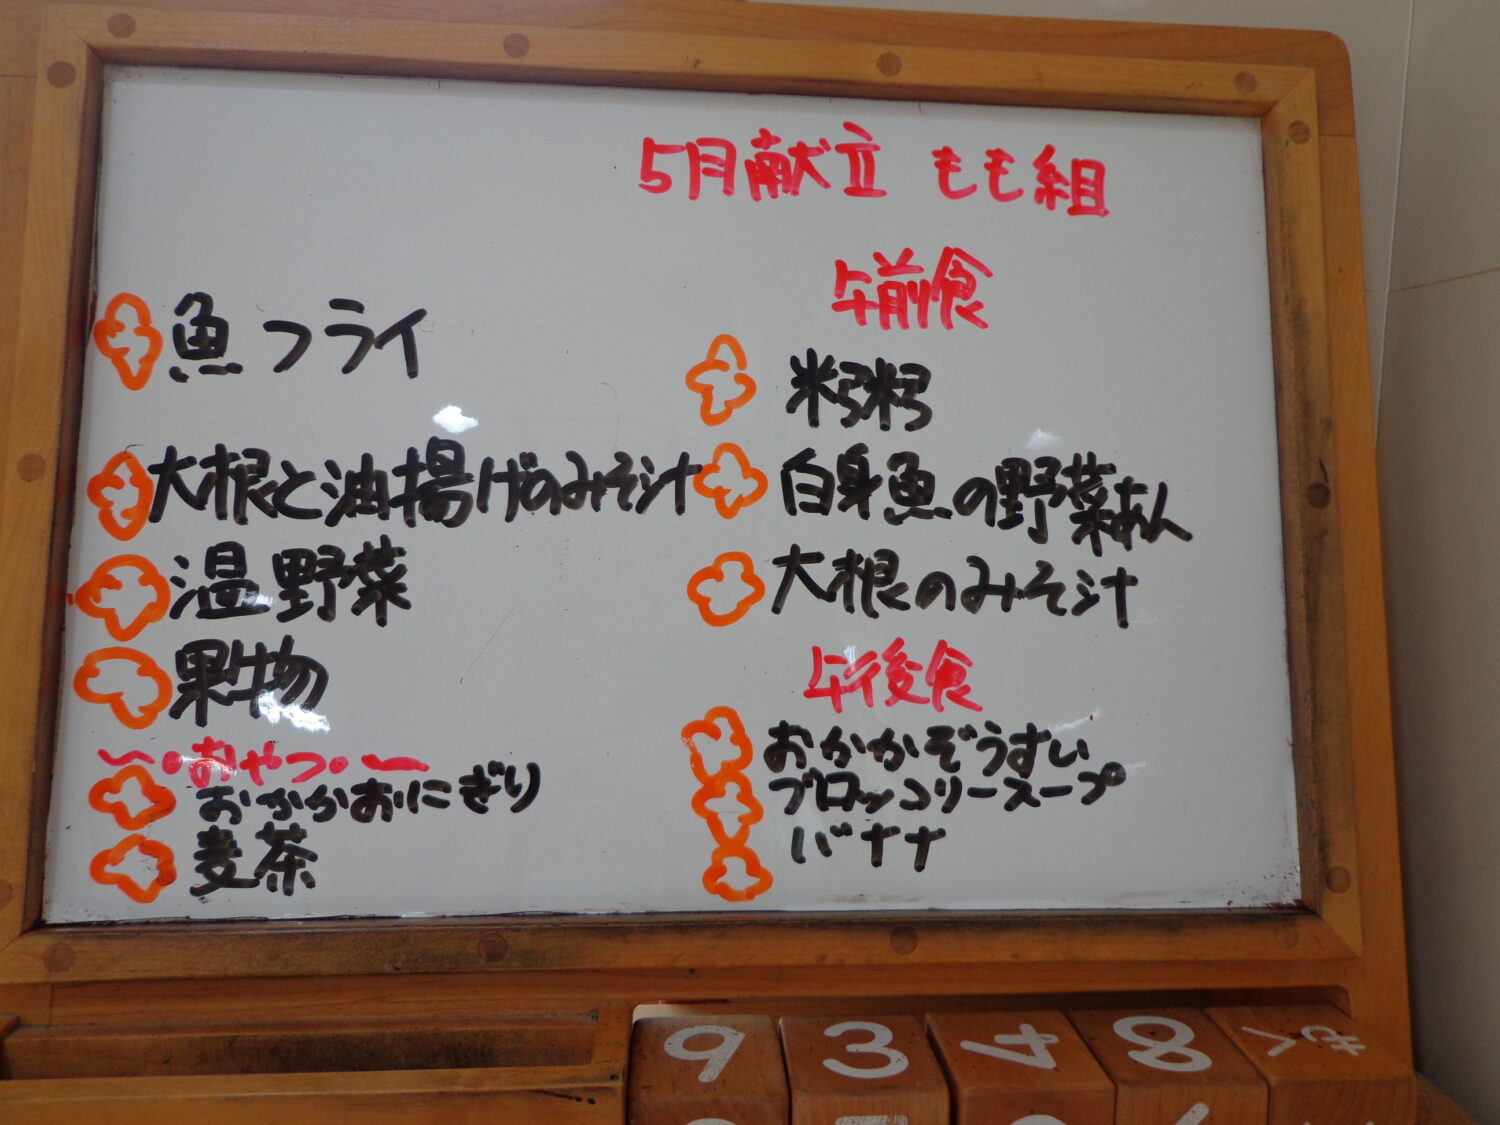 5月献立 もも組
魚フライ
大根と油揚げのみそ汁
温野菜
果物
おやつ
おかかおにぎり
麦茶
午前食
米粥粥
白身魚の野菜あん
大根のみそ汁
午後食
おかかぞうすい
ブロッコリースープ
バナナ
9 3 4 8